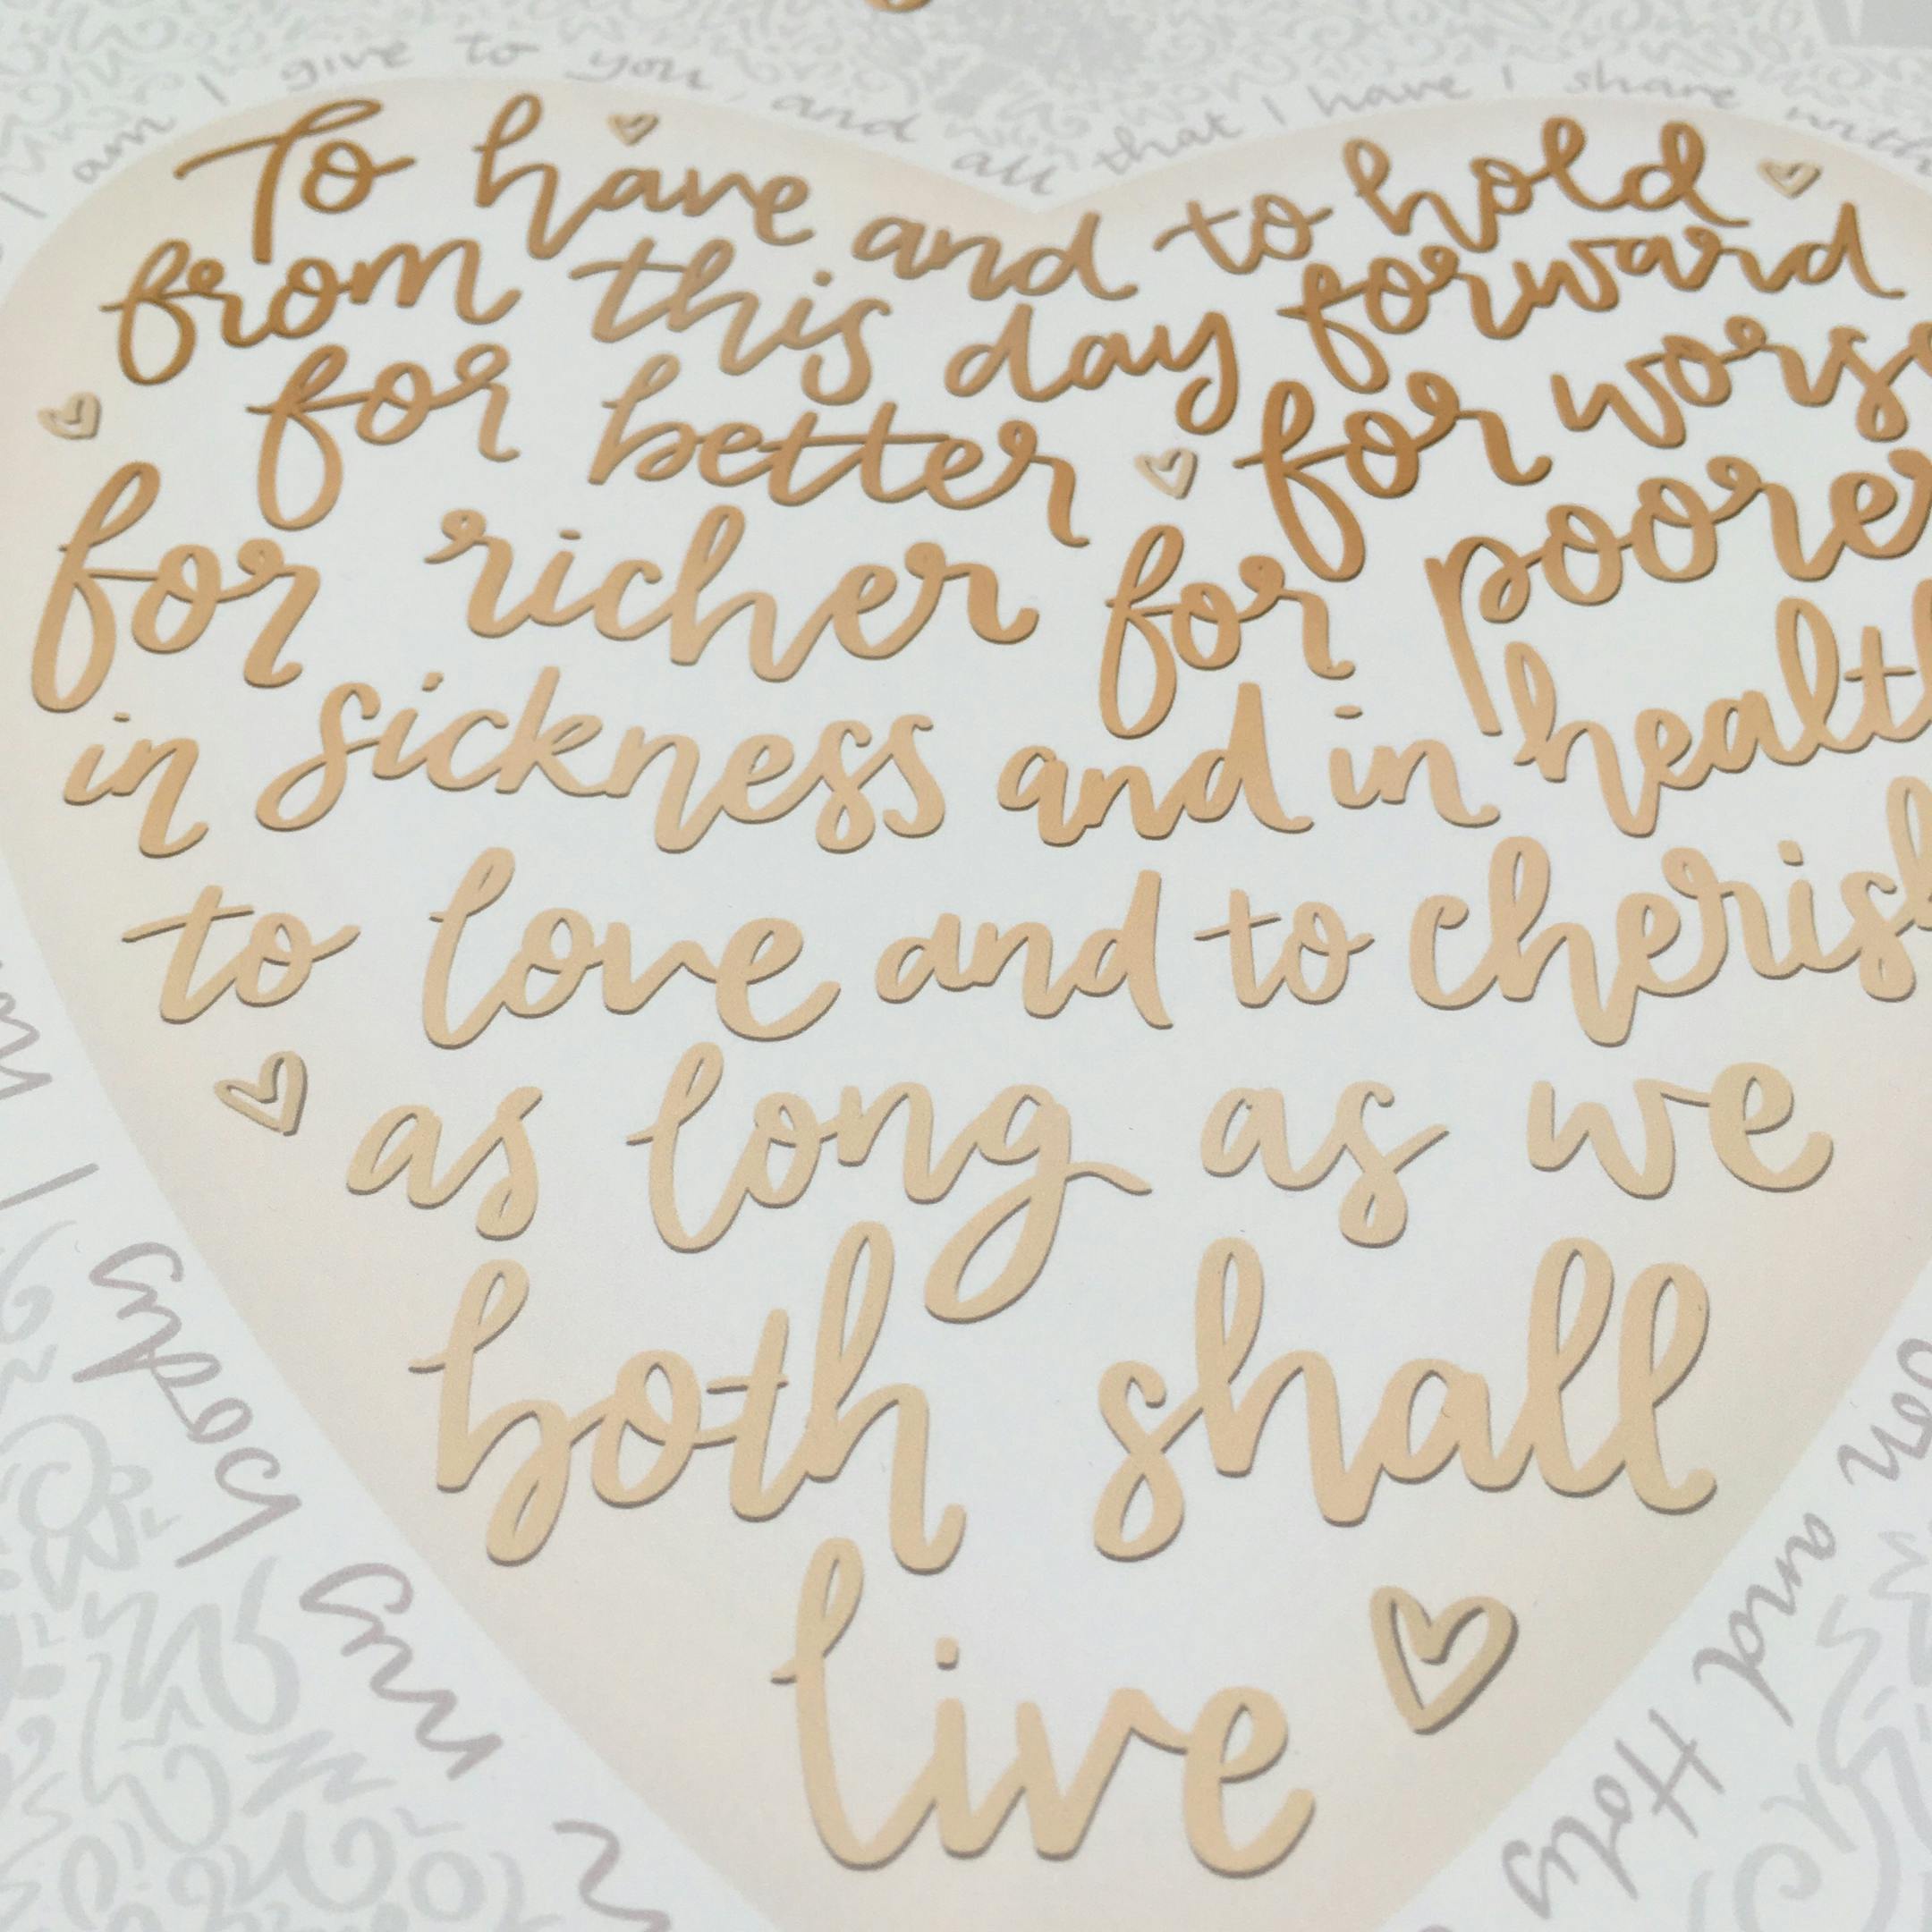 am I give to you, and all that I have I share with
To have and to hold
from this day forward
for better for worse
for richer for poorer
in sickness and in health
to love and to cherish
as long as we
both shall
live
my body I
and Holy